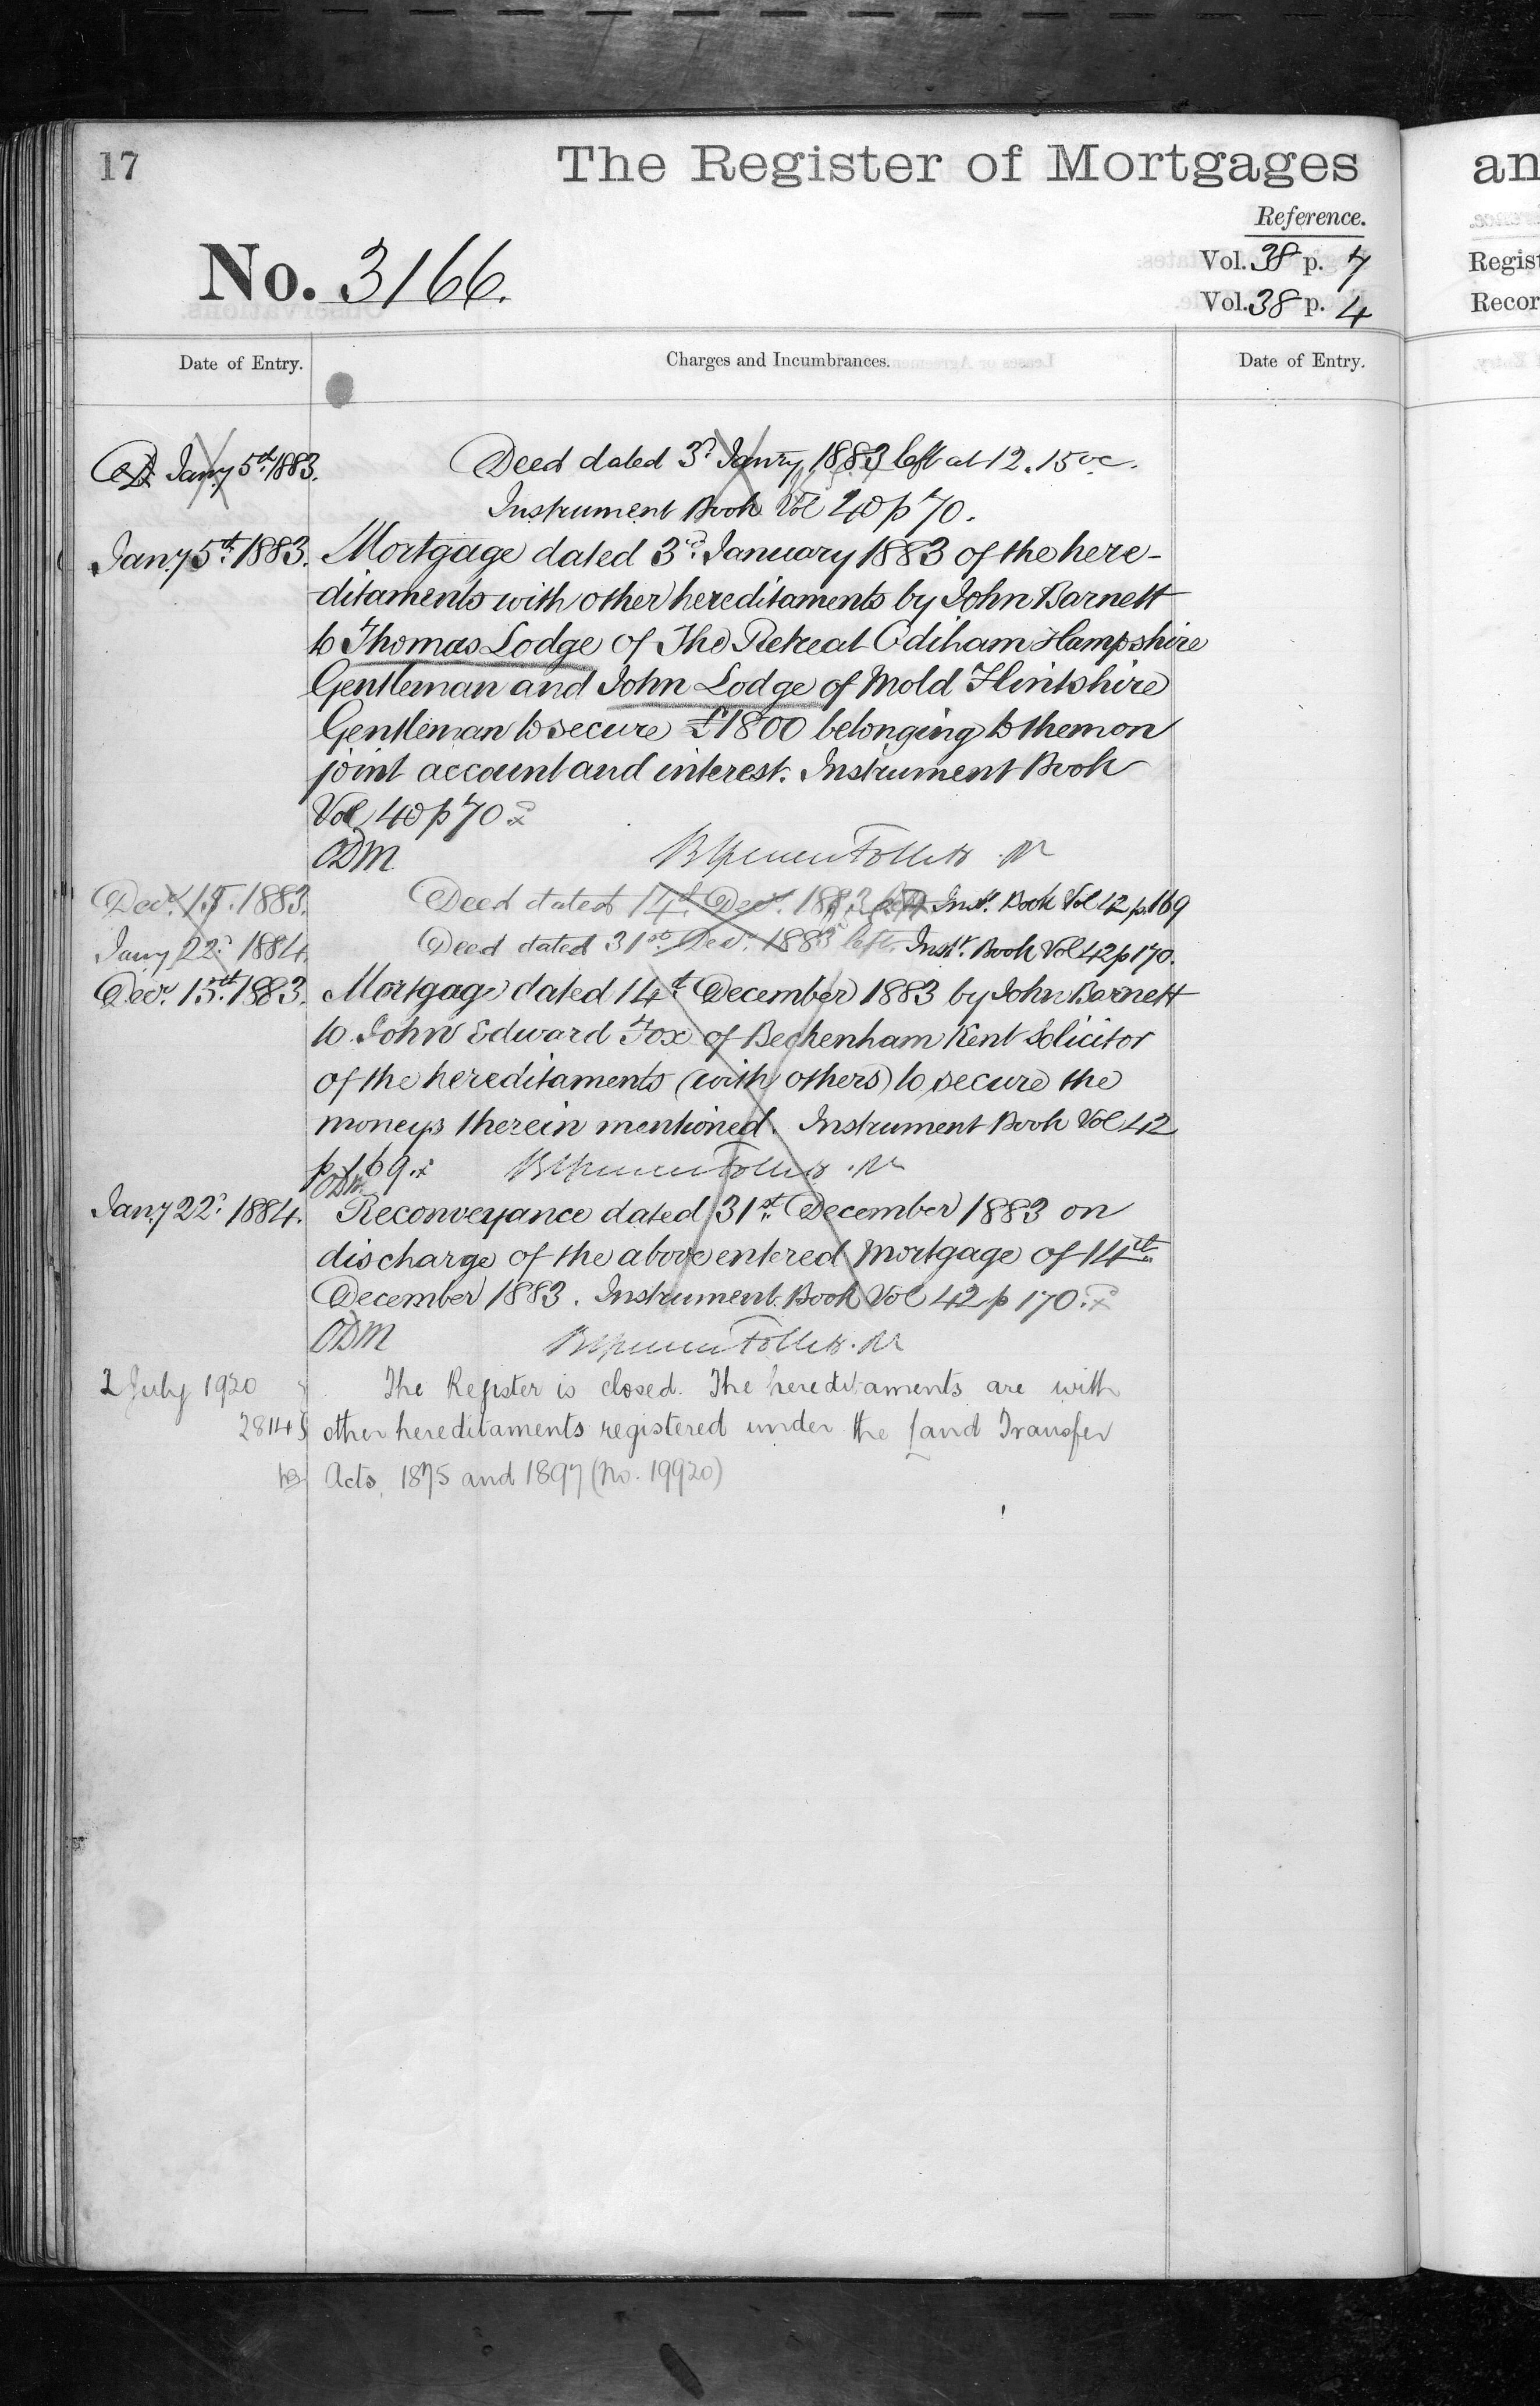 17
The Register of Mortgages
an
Reference.
No. 3166.
Vol. 38 p. 7
Regist
Vol. 38 p. 4
Recor
Date of Entry.
Charges and Incumbrances.
Date of Entry.
Jany 5th 1883.
Deed dated 3d Janry 1883 left at 12.15 oc.
Instrument Book Vol 40 p 70.
Jany 5th 1883. Mortgage dated 3rd January 1883 of the here-
ditaments with other hereditaments by John Barnett
to Thomas Lodge of The Retreat Odiham Hampshire
Gentleman and John Lodge of Mold Flintshire
Gentleman to secure £1800 belonging to them on
joint account and interest. Instrument Book
Vol 40 p 70
ODM
Decr. 15. 1883. Deed dated 14th Decr. 1883 left Inst. Book Vol 42 p. 169
Jany 22d 1884. Deed dated 31st Decr. 1883 left. Instt. Book Vol 42 p 170.
Decr. 15th 1883. Mortgage dated 14th December 1883 by John Barnett
to John Edward Fox of Beckenham Kent Solicitor
of the hereditaments (with others) to secure the
moneys therein mentioned. Instrument Book Vol 42
p 169.
ODM
Jany 22d 1884. Reconveyance dated 31st December 1883 on
discharge of the above entered Mortgage of 14th
December 1883. Instrument Book Vol 42 p 170.
ODM
2 July 1920 The Register is closed. The hereditaments are with
28145 other hereditaments registered under the Land Transfer
Acts, 1875 and 1897 (No. 19920)